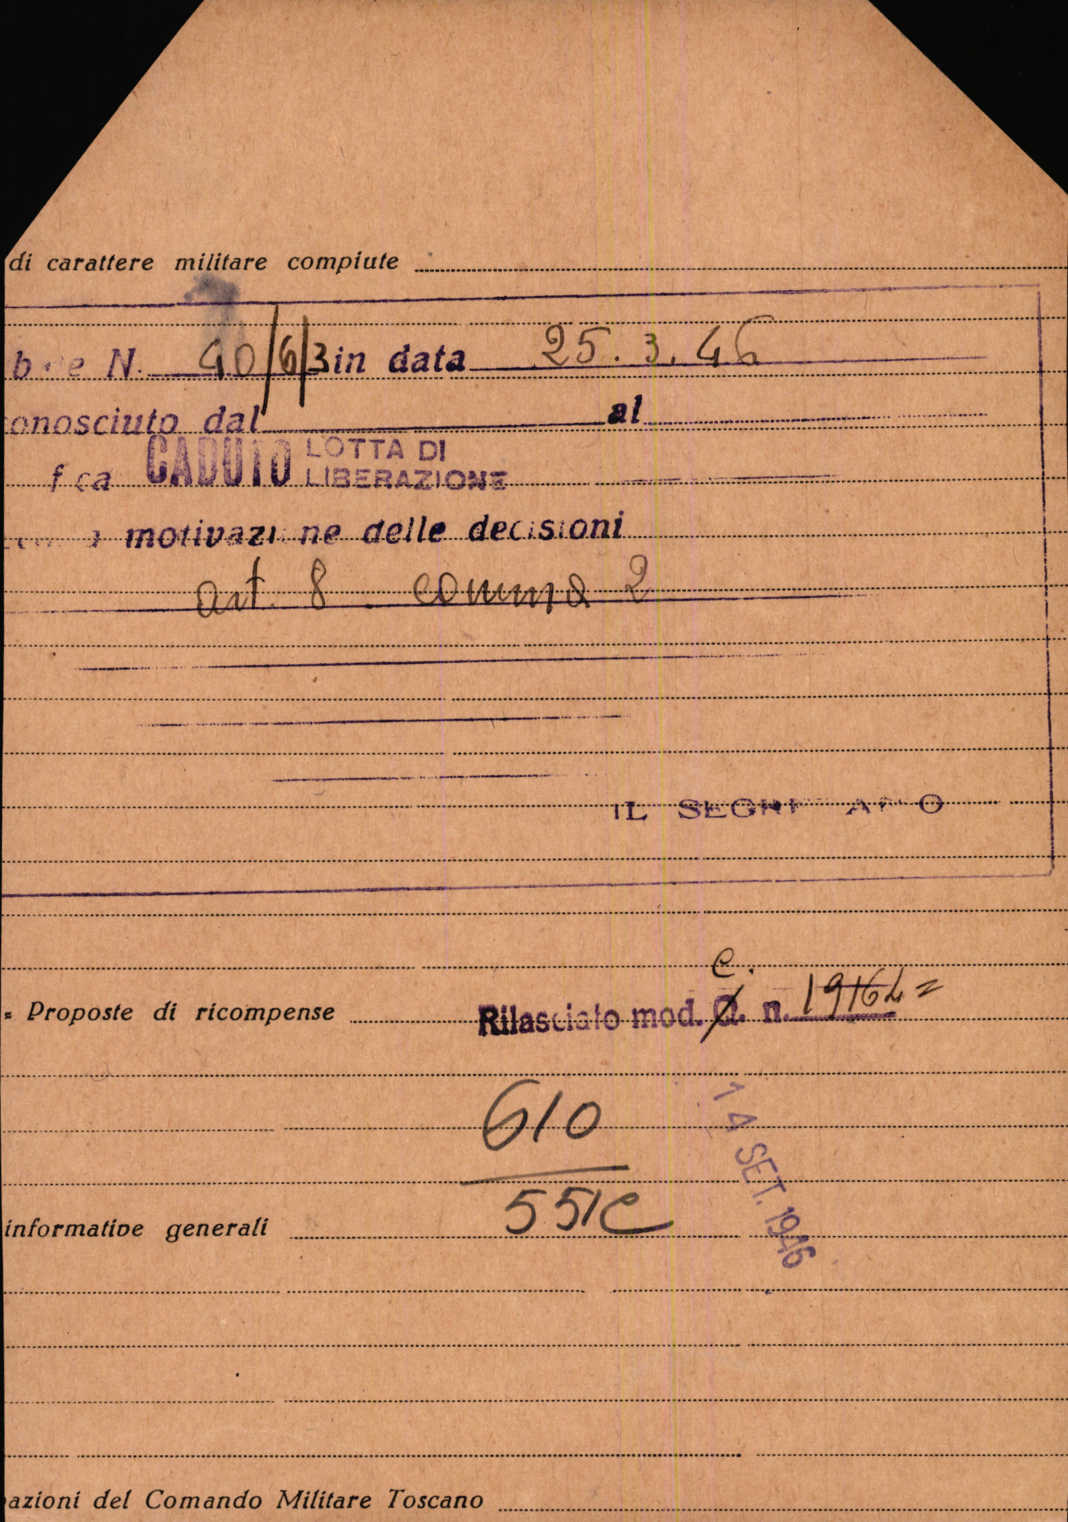 di carattere militare compiute
N. 40/6/3 in data 25.3.46
onosciuto dal al
CADUTO LOTTA DI
LIBERAZIONE
motivazi ne delle decisioni
art. 8 comma 2
IL
e.
= Proposte di ricompense Rilasciato mod. n. 19162=
610
14 SET. 1946
551C
informative generali
azioni del Comando Militare Toscano